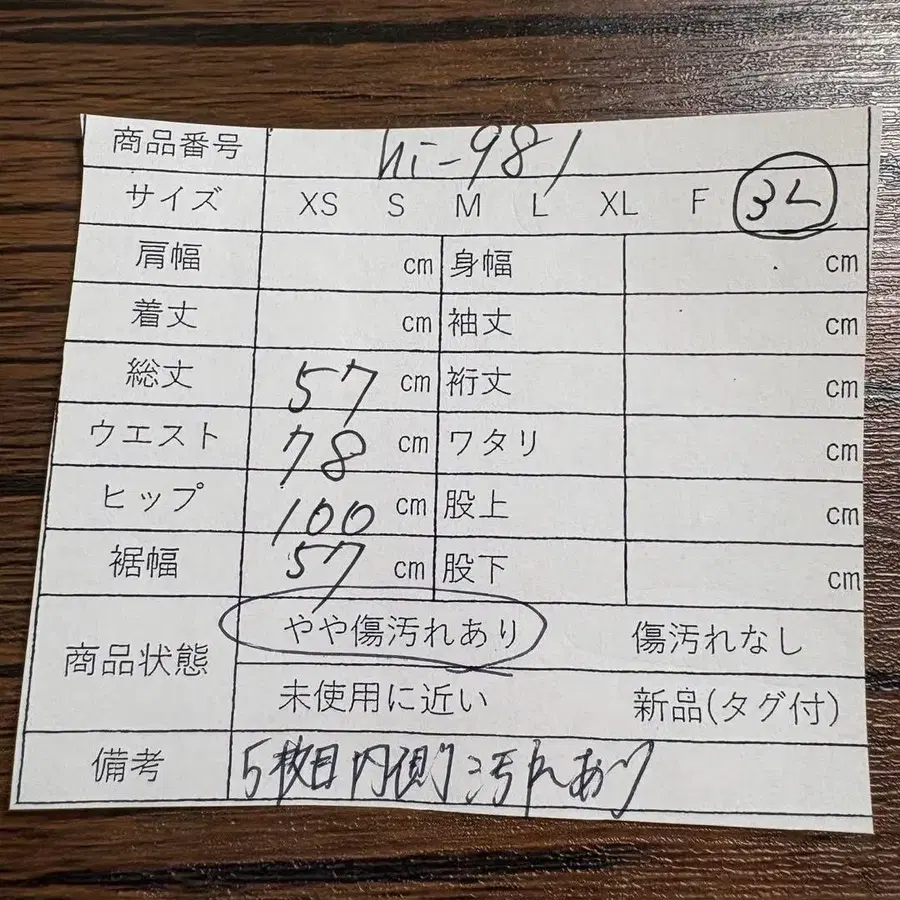 商品番号 hi-981
サイズ XS S M L XL F 3L
肩幅 cm 身幅 cm
着丈 cm 袖丈 cm
総丈 57 cm 裄丈 cm
ウエスト 78 cm ワタリ cm
ヒップ 100 cm 股上 cm
裾幅 57 cm 股下 cm
商品状態 やや傷汚れあり 傷汚れなし
未使用に近い 新品(タグ付)
備考 5枚目内側汚れあり